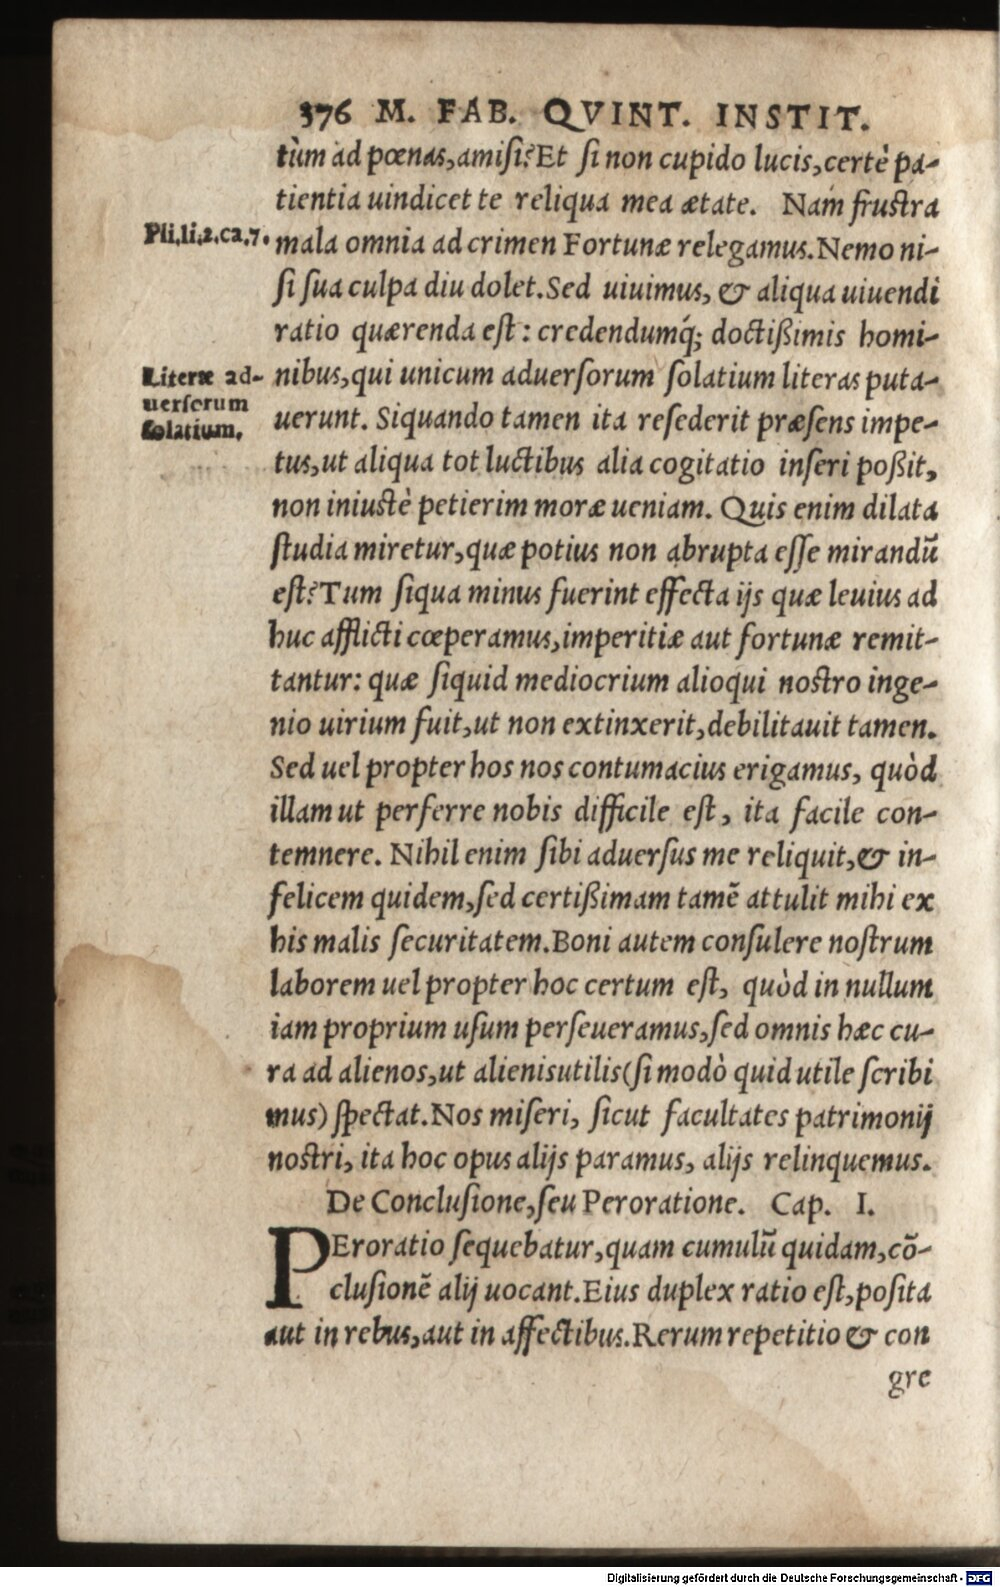 376 M. FAB. QVINT. INSTIT.
tùm ad pœnas,amisi?Et si non cupido lucis,certè pa-
tientia uindicet te reliqua mea ætate. Nam frustra
Pli.li.2.ca.7.
mala omnia ad crimen Fortunæ relegamus.Nemo ni-
si sua culpa diu dolet.Sed uiuimus, & aliqua uiuendi
ratio quærenda est: credendumq́; doctißimis homi-
Literæ ad-
uersorum
solatium.
nibus,qui unicum aduersorum solatium literas puta-
uerunt. Siquando tamen ita resederit præsens impe-
tus,ut aliqua tot luctibus alia cogitatio inseri poßit,
non iniustè petierim moræ ueniam. Quis enim dilata
studia miretur,quæ potius non abrupta esse mirandū
est?Tum siqua minus fuerint effecta ijs quæ leuius ad
huc afflicti cœperamus,imperitiæ aut fortunæ remit-
tantur: quæ siquid mediocrium alioqui nostro inge-
nio uirium fuit,ut non extinxerit,debilitauit tamen.
Sed uel propter hos nos contumacius erigamus, quòd
illam ut perferre nobis difficile est, ita facile con-
temnere. Nihil enim sibi aduersus me reliquit,& in-
felicem quidem,sed certißimam tamē attulit mihi ex
his malis securitatem.Boni autem consulere nostrum
laborem uel propter hoc certum est, quòd in nullum
iam proprium usum perseueramus,sed omnis hæc cu-
ra ad alienos,ut alienisutilis(si modò quid utile scribi
mus) spectat.Nos miseri, sicut facultates patrimonij
nostri, ita hoc opus alijs paramus, alijs relinquemus.
De Conclusione,seu Peroratione. Cap. I.
PEroratio sequebatur,quam cumulū quidam,cō-
clusionē alij uocant.Eius duplex ratio est,posita
aut in rebus,aut in affectibus.Rerum repetitio & con
gre
Digitalisierung gefördert durch die Deutsche Forschungsgemeinschaft - DFG